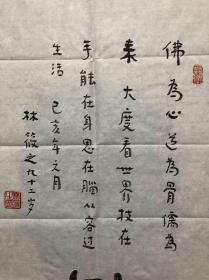 佛為心道為骨儒為
表大度看世界技在
手能在身思在腦从容过
生活 己亥年元月
林筱之九十二岁